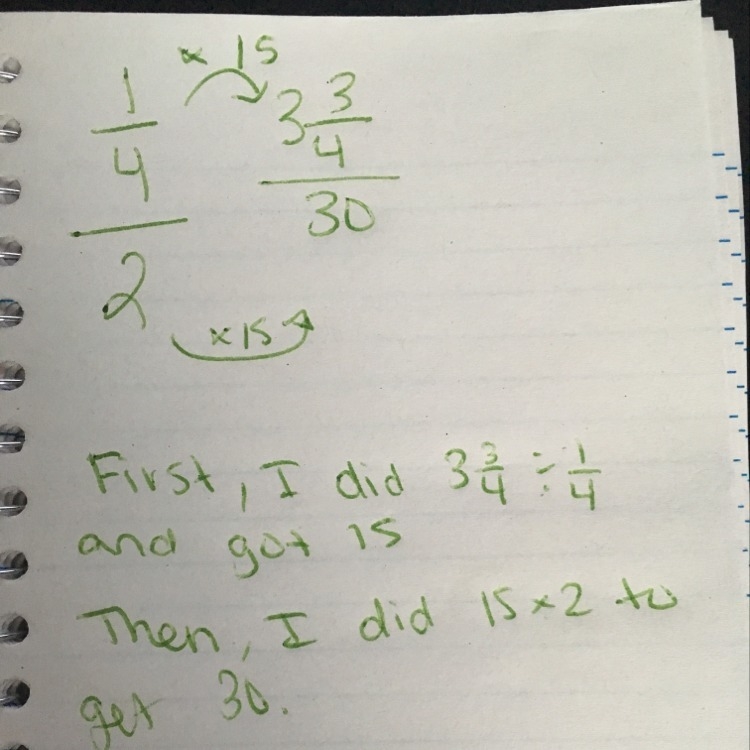 × 15
1/4 3 3/4
2 30
×15
First, I did 3 3/4 ÷ 1/4
and got 15
Then, I did 15×2 to
get 30.